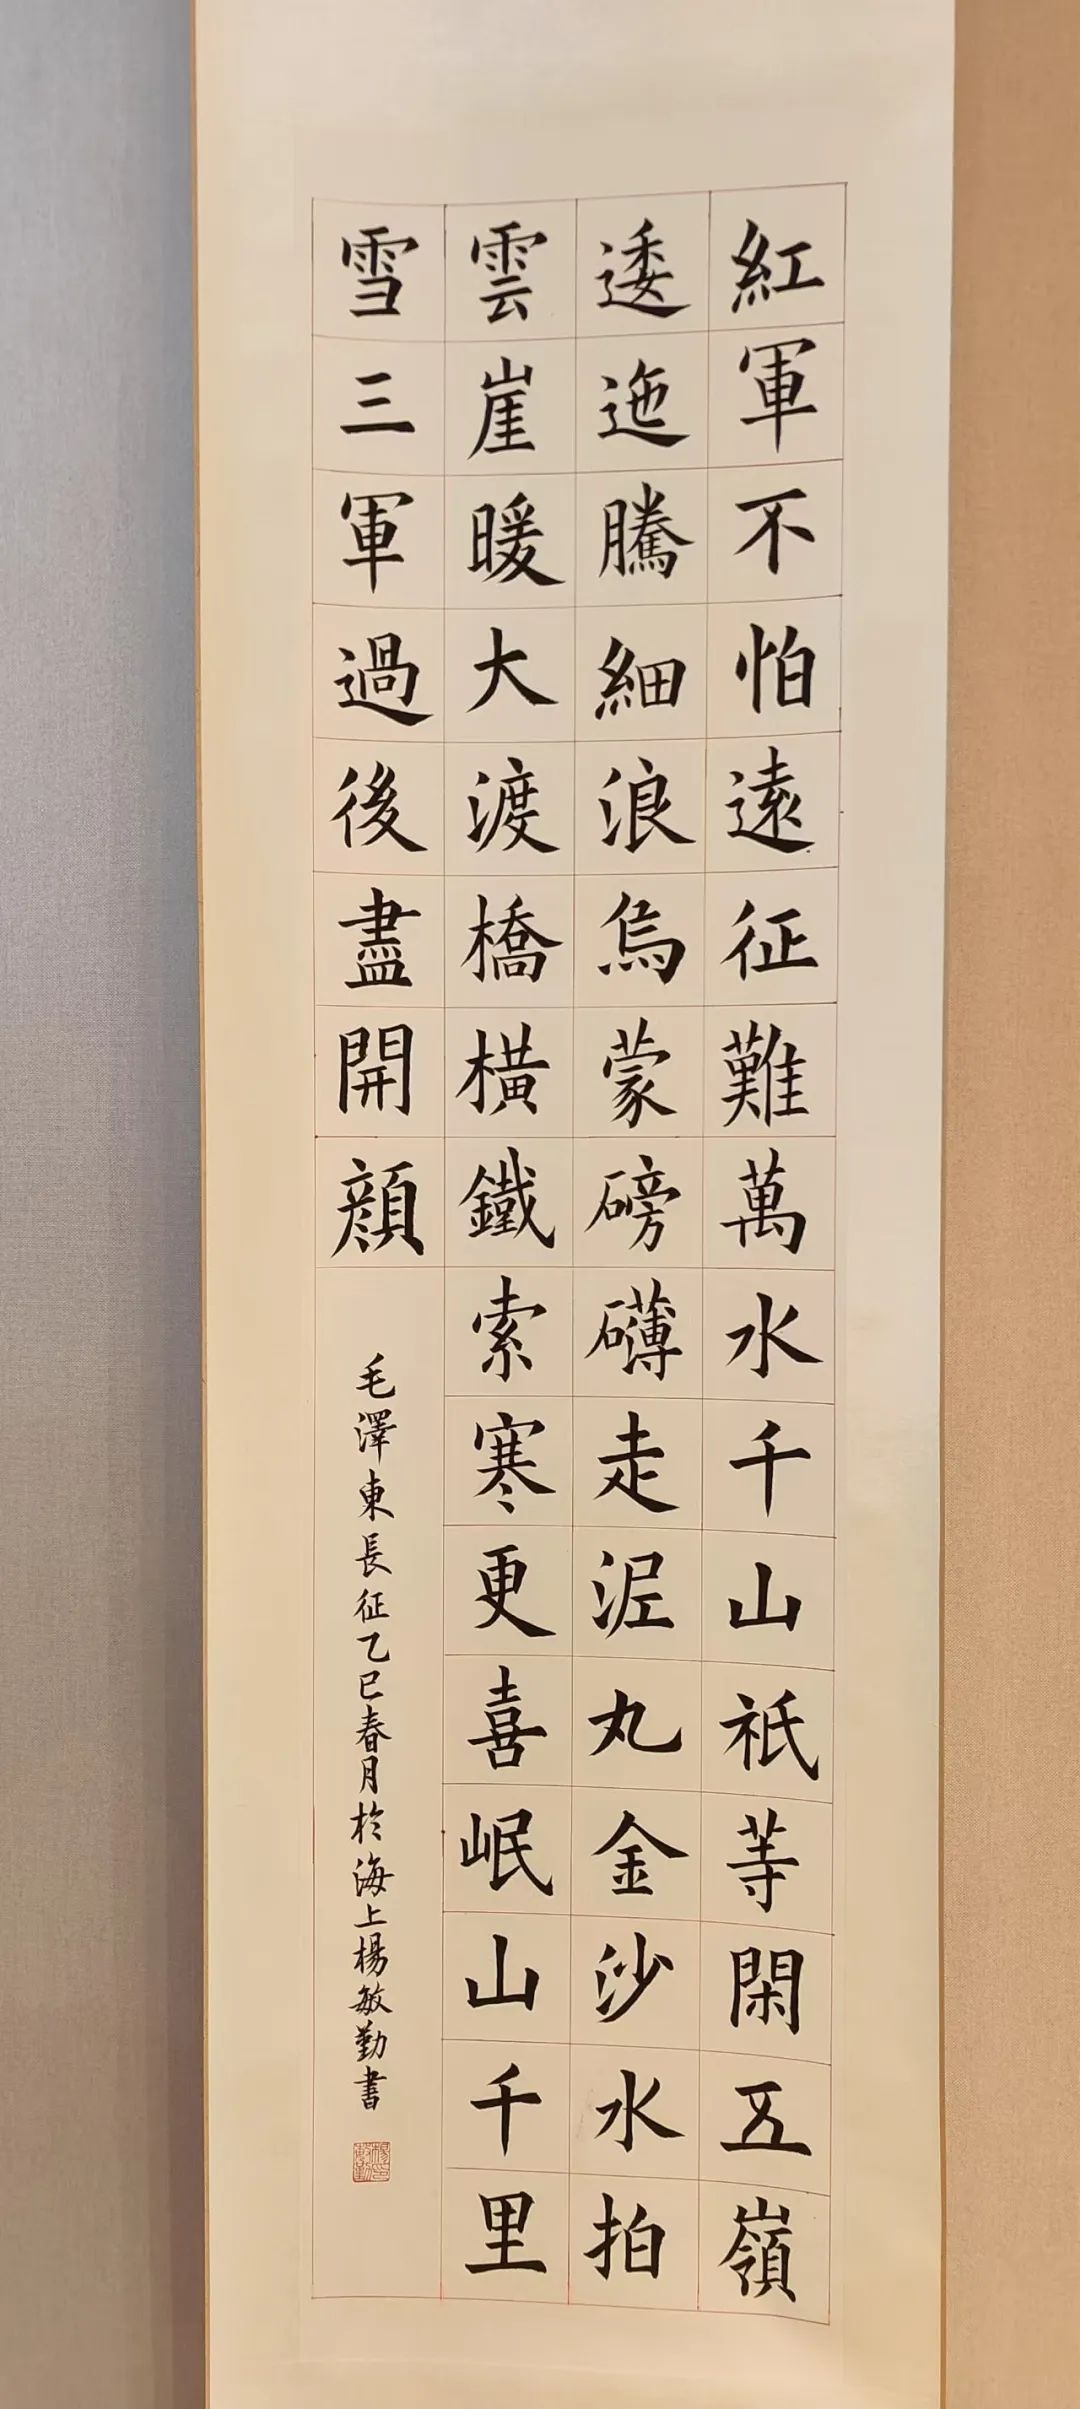 紅軍不怕遠征難萬水千山衹等閑五嶺
逶迤騰細浪烏蒙磅礴走泥丸金沙水拍
雲崖暖大渡橋橫鐵索寒更喜岷山千里
雪三軍過後盡開顔
毛澤東長征乙巳春月於海上楊敏勤書